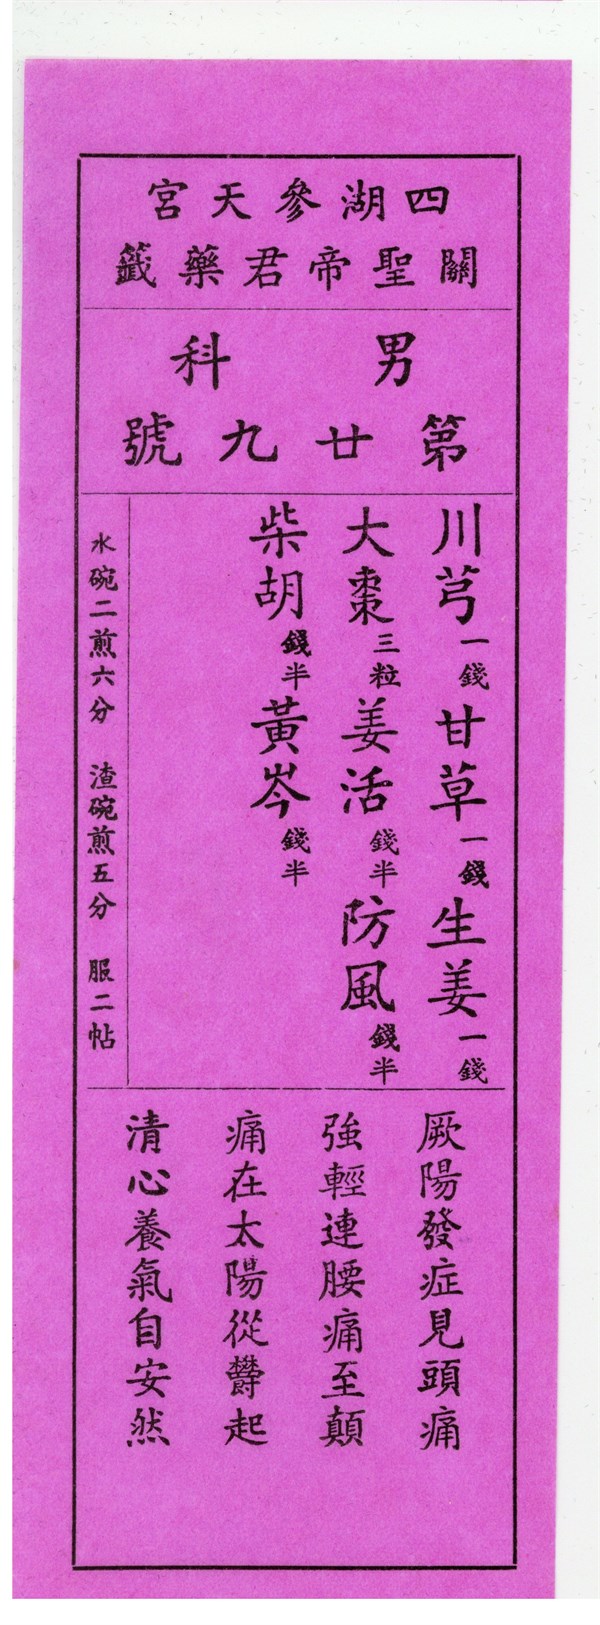 四湖參天宮
關聖帝君藥籤
男科
第廿九號
川芎一錢甘草一錢生姜一錢
大棗三粒姜活錢半防風錢半
柴胡錢半黃岑錢半
水碗二煎六分 渣碗煎五分 服二帖
厥陽發症見頭痛
強輕連腰痛至顛
痛在太陽從欝起
清心養氣自安然